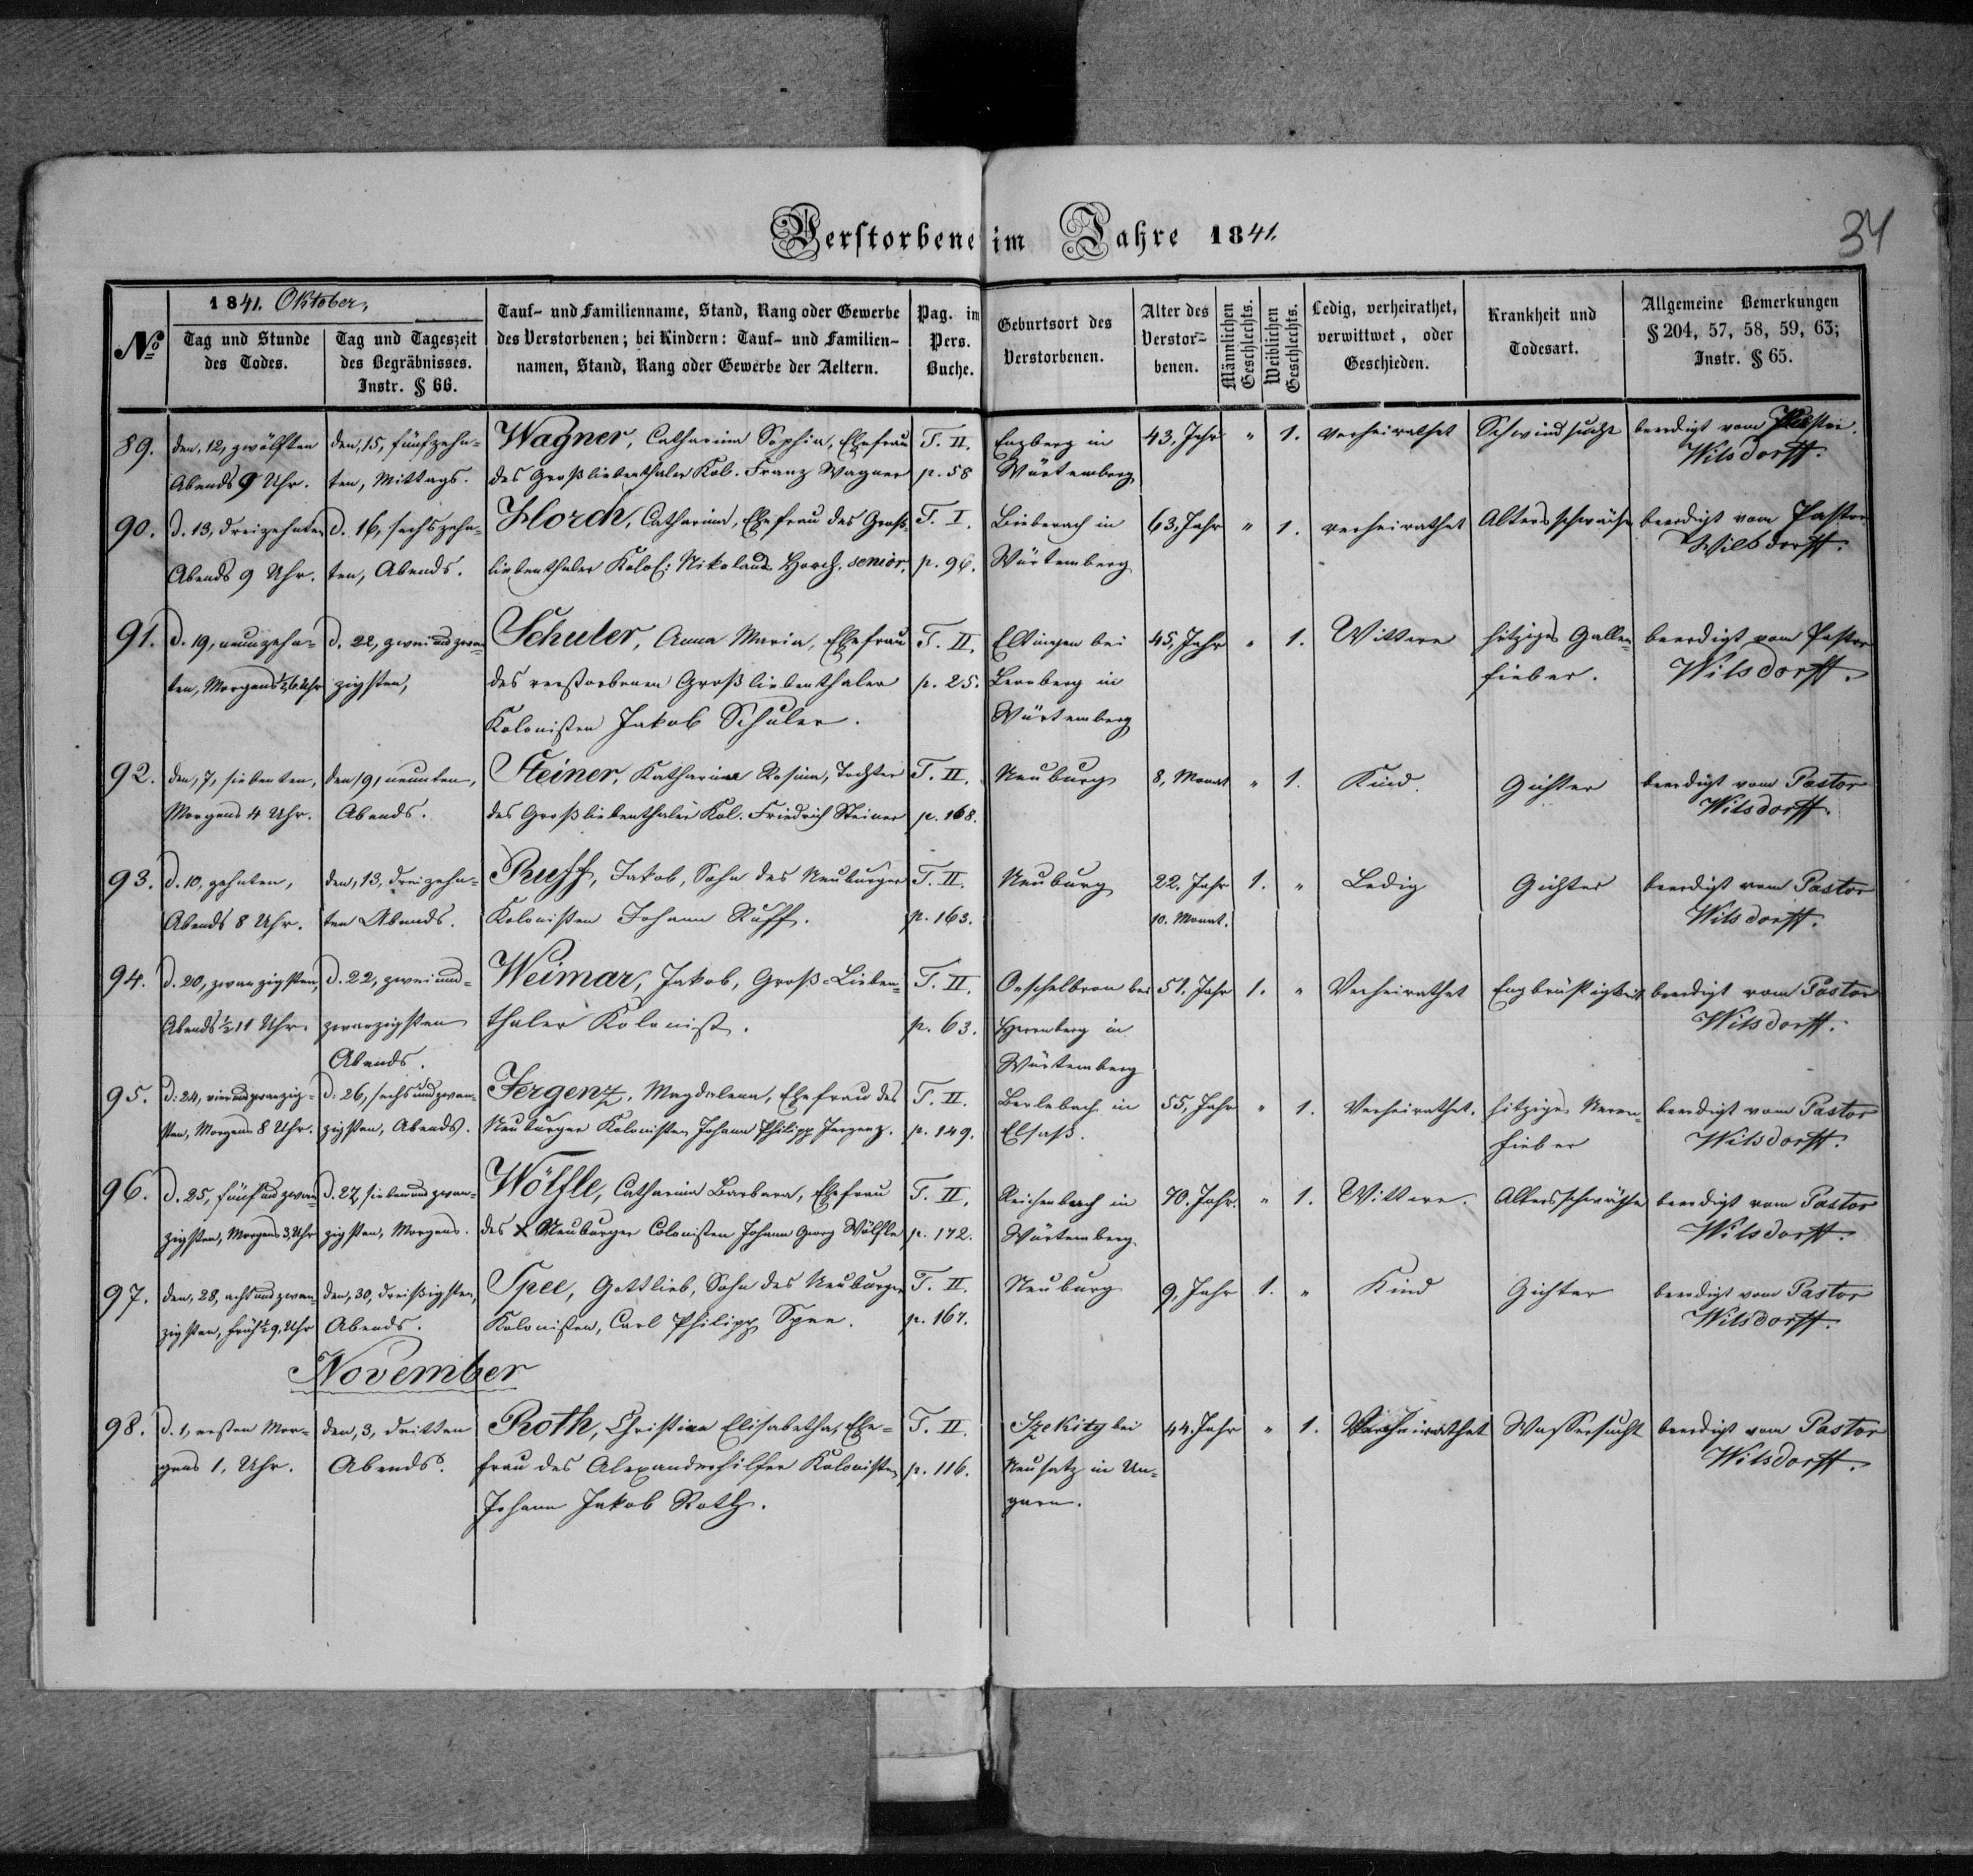 Verstorbene im Jahre 1841.
34
1841. Oktober,
№
Tag und Stunde des Todes.
Tag und Tageszeit des Begräbnisses. Instr. § 66.
Tauf- und Familienname, Stand, Rang oder Gewerbe des Verstorbenen; bei Kindern: Tauf- und Familien- namen, Stand, Rang oder Gewerbe der Aeltern.
Pag. im Pers. Buche.
Geburtsort des Verstorbenen.
Alter des Verstor- benen.
Männlichen Geschlechts.
Weiblichen Geschlechts.
Ledig, verheirathet, verwittwet, oder Geschieden.
Krankheit und Todesart.
Allgemeine Bemerkungen § 204, 57, 58, 59, 63; Instr. § 65.
89. den, 12, zwölften den, 15, fünfzehn- Wagner, Catharina Sophia, Ehefrau T. II. Enzberg in 43, Jahr " 1. verheirathet Schwindsucht beerdigt vom Pastor
Abends 9 Uhr. ten, Mittags. des Großliebenthaler Kol. Franz Wagner p. 58 Würtemberg Wilsdorff.
90. d. 13, dreizehnten d. 16, sechszehn- Horch, Catharina, Ehefrau des Groß- T. I. Bieberach in 63, Jahr " 1. verheirathet Altersschwäche beerdigt vom Pastor
Abends 9 Uhr. ten, Abends. liebenthaler Kolo: Nikolaus Horch, senior. p. 96. Würtemberg Wilsdorff.
91. d. 19, neunzehn- d. 22, zwei und zwan- Schuler, Anna Maria, Ehefrau T. II. Eltingen bei 45, Jahr " 1. Wittwe hitziges Gallen- beerdigt vom Pastor
ten, Morgens ½ 6. Uhr zigsten, des verstorbenen Großliebenthaler p. 25. Leonberg in fieber. Wilsdorff.
Kolonisten Jakob Schuler. Würtemberg
92. den, 7, siebenten, den, 9, neunten, Steiner, Katharina Rosina, Tochter T. II. Neuburg 8, Monat " 1. Kind. Gichter beerdigt vom Pastor
Morgens 4 Uhr. Abends. des Großliebenthaler Kol. Friedrich Steiner p. 168. Wilsdorff.
93. d. 10, zehnten, den, 13, dreizehn- Ruff, Jakob, Sohn des Neuburger T. II. Neuburg 22. Jahr 1. " Ledig Gichter beerdigt vom Pastor
Abends 8 Uhr. ten Abends. Kolonisten Johann Ruff. p. 163. 10. Monat. Wilsdorff.
94. d. 20, zwanzigsten, d. 22, zwei und- Weimar, Jakob, Groß-Lieben- T. II. Oeschelbron bei 51. Jahr 1. " Verheirathet Engbrüstigkeit beerdigt vom Pastor
Abends ½ 11 Uhr. zwanzigsten thaler Kolonist. p. 63. Herrenberg in Wilsdorff.
Abends. Würtemberg
95. d. 24, vier und zwanzig- d. 26, sechs und zwan- Jergenz, Magdalena, Ehefrau des T. II. Berlebach in 55, Jahr " 1. Verheirathet. hitziges Nerven- beerdigt vom Pastor
sten, Morgens 8 Uhr. zigsten, Abends. Neuburger Kolonisten Johann Philipp Jergenz. p. 149. Elsaß. fieber Wilsdorff.
96. d. 25, fünf und zwan- d. 27, sieben und zwan- Wölfle, Catharina Barbara, Ehefrau T. II. Reichenbach in 70. Jahr. " 1. Wittwe. Altersschwäche beerdigt vom Pastor
zigsten, Morgens 3, Uhr zigsten, Morgens. des Neuburger Colonisten Johann Georg Wölfle p. 172. Würtemberg Wilsdorff.
97. den, 28, acht und zwan- den, 30, dreißigsten, Spee, Gottlieb, Sohn des Neuburger T. II. Neuburg 9, Jahr 1. " Kind Gichter beerdigt vom Pastor
zigsten, früh ½ 9, Uhr Abends. Kolonisten, Carl Philipp Spee. p. 167. Wilsdorff.
November
98. d. 1, ersten Mor- den, 3, dritten Roth, Christina Elisabetha, Ehe- T. II. Szekity bei 44. Jahr " 1. Verheirathet Wassersucht beerdigt vom Pastor
gens 1, Uhr. Abends. frau des Alexanderhilfer Kolonisten p. 116. Neusatz in Un- Wilsdorff.
Johann Jakob Roth. garn.